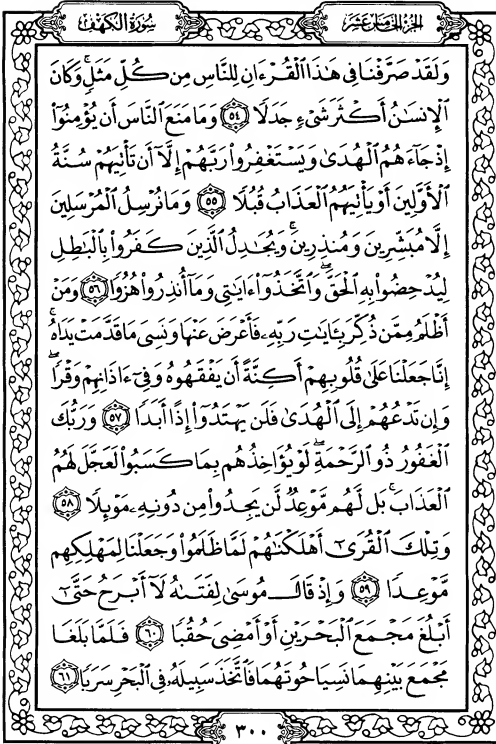 سورة الكهف الجزء الخامس عشر
وَلَقَدْ صَرَّفْنَا فِى هَٰذَا ٱلْقُرْءَانِ لِلنَّاسِ مِن كُلِّ مَثَلٍ ۚ وَكَانَ
ٱلْإِنسَٰنُ أَكْثَرَ شَىْءٍ جَدَلًا ٥٤ وَمَا مَنَعَ ٱلنَّاسَ أَن يُؤْمِنُوٓا۟
إِذْ جَآءَهُمُ ٱلْهُدَىٰ وَيَسْتَغْفِرُوا۟ رَبَّهُمْ إِلَّآ أَن تَأْتِيَهُمْ سُنَّةُ
ٱلْأَوَّلِينَ أَوْ يَأْتِيَهُمُ ٱلْعَذَابُ قُبُلًا ٥٥ وَمَا نُرْسِلُ ٱلْمُرْسَلِينَ
إِلَّا مُبَشِّرِينَ وَمُنذِرِينَ ۚ وَيُجَٰدِلُ ٱلَّذِينَ كَفَرُوا۟ بِٱلْبَٰطِلِ
لِيُدْحِضُوا۟ بِهِ ٱلْحَقَّ ۖ وَٱتَّخَذُوٓا۟ ءَايَٰتِى وَمَآ أُنذِرُوا۟ هُزُوًا ٥٦ وَمَنْ
أَظْلَمُ مِمَّن ذُكِّرَ بِـَٔايَٰتِ رَبِّهِۦ فَأَعْرَضَ عَنْهَا وَنَسِىَ مَا قَدَّمَتْ يَدَاهُ ۚ
إِنَّا جَعَلْنَا عَلَىٰ قُلُوبِهِمْ أَكِنَّةً أَن يَفْقَهُوهُ وَفِىٓ ءَاذَانِهِمْ وَقْرًا ۖ
وَإِن تَدْعُهُمْ إِلَى ٱلْهُدَىٰ فَلَن يَهْتَدُوٓا۟ إِذًا أَبَدًا ٥٧ وَرَبُّكَ
ٱلْغَفُورُ ذُو ٱلرَّحْمَةِ ۖ لَوْ يُؤَاخِذُهُم بِمَا كَسَبُوا۟ لَعَجَّلَ لَهُمُ
ٱلْعَذَابَ ۚ بَل لَّهُم مَّوْعِدٌ لَّن يَجِدُوا۟ مِن دُونِهِۦ مَوْئِلًا ٥٨
وَتِلْكَ ٱلْقُرَىٰٓ أَهْلَكْنَٰهُمْ لَمَّا ظَلَمُوا۟ وَجَعَلْنَا لِمَهْلِكِهِم
مَّوْعِدًا ٥٩ وَإِذْ قَالَ مُوسَىٰ لِفَتَىٰهُ لَآ أَبْرَحُ حَتَّىٰٓ
أَبْلُغَ مَجْمَعَ ٱلْبَحْرَيْنِ أَوْ أَمْضِىَ حُقُبًا ٦٠ فَلَمَّا بَلَغَا
مَجْمَعَ بَيْنِهِمَا نَسِيَا حُوتَهُمَا فَٱتَّخَذَ سَبِيلَهُۥ فِى ٱلْبَحْرِ سَرَبًا ٦١
٣٠٠